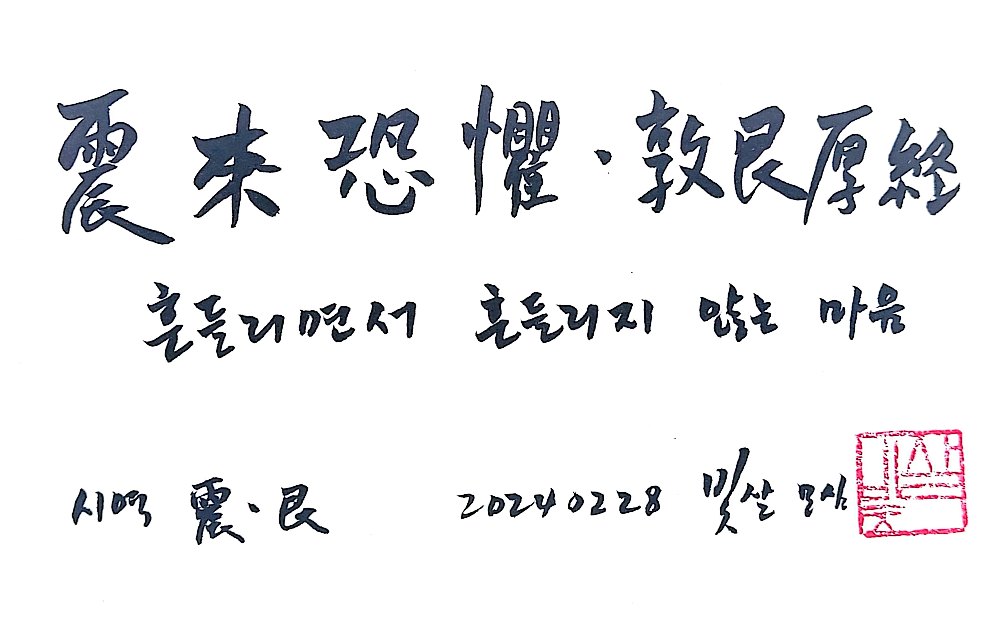 震來恐懼·敦艮厚終
흔들리면서 흔들리지 않는 마음
시역 震·艮 20240228 빛살 모심
빛살